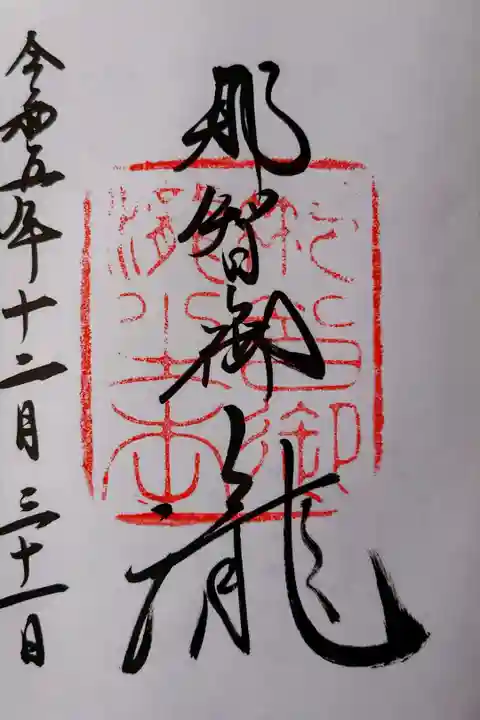 那智御瀧
令和五年十二月三十一日